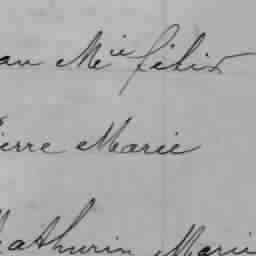 an M.ie félix
ierre Marie
Mathurin Marie